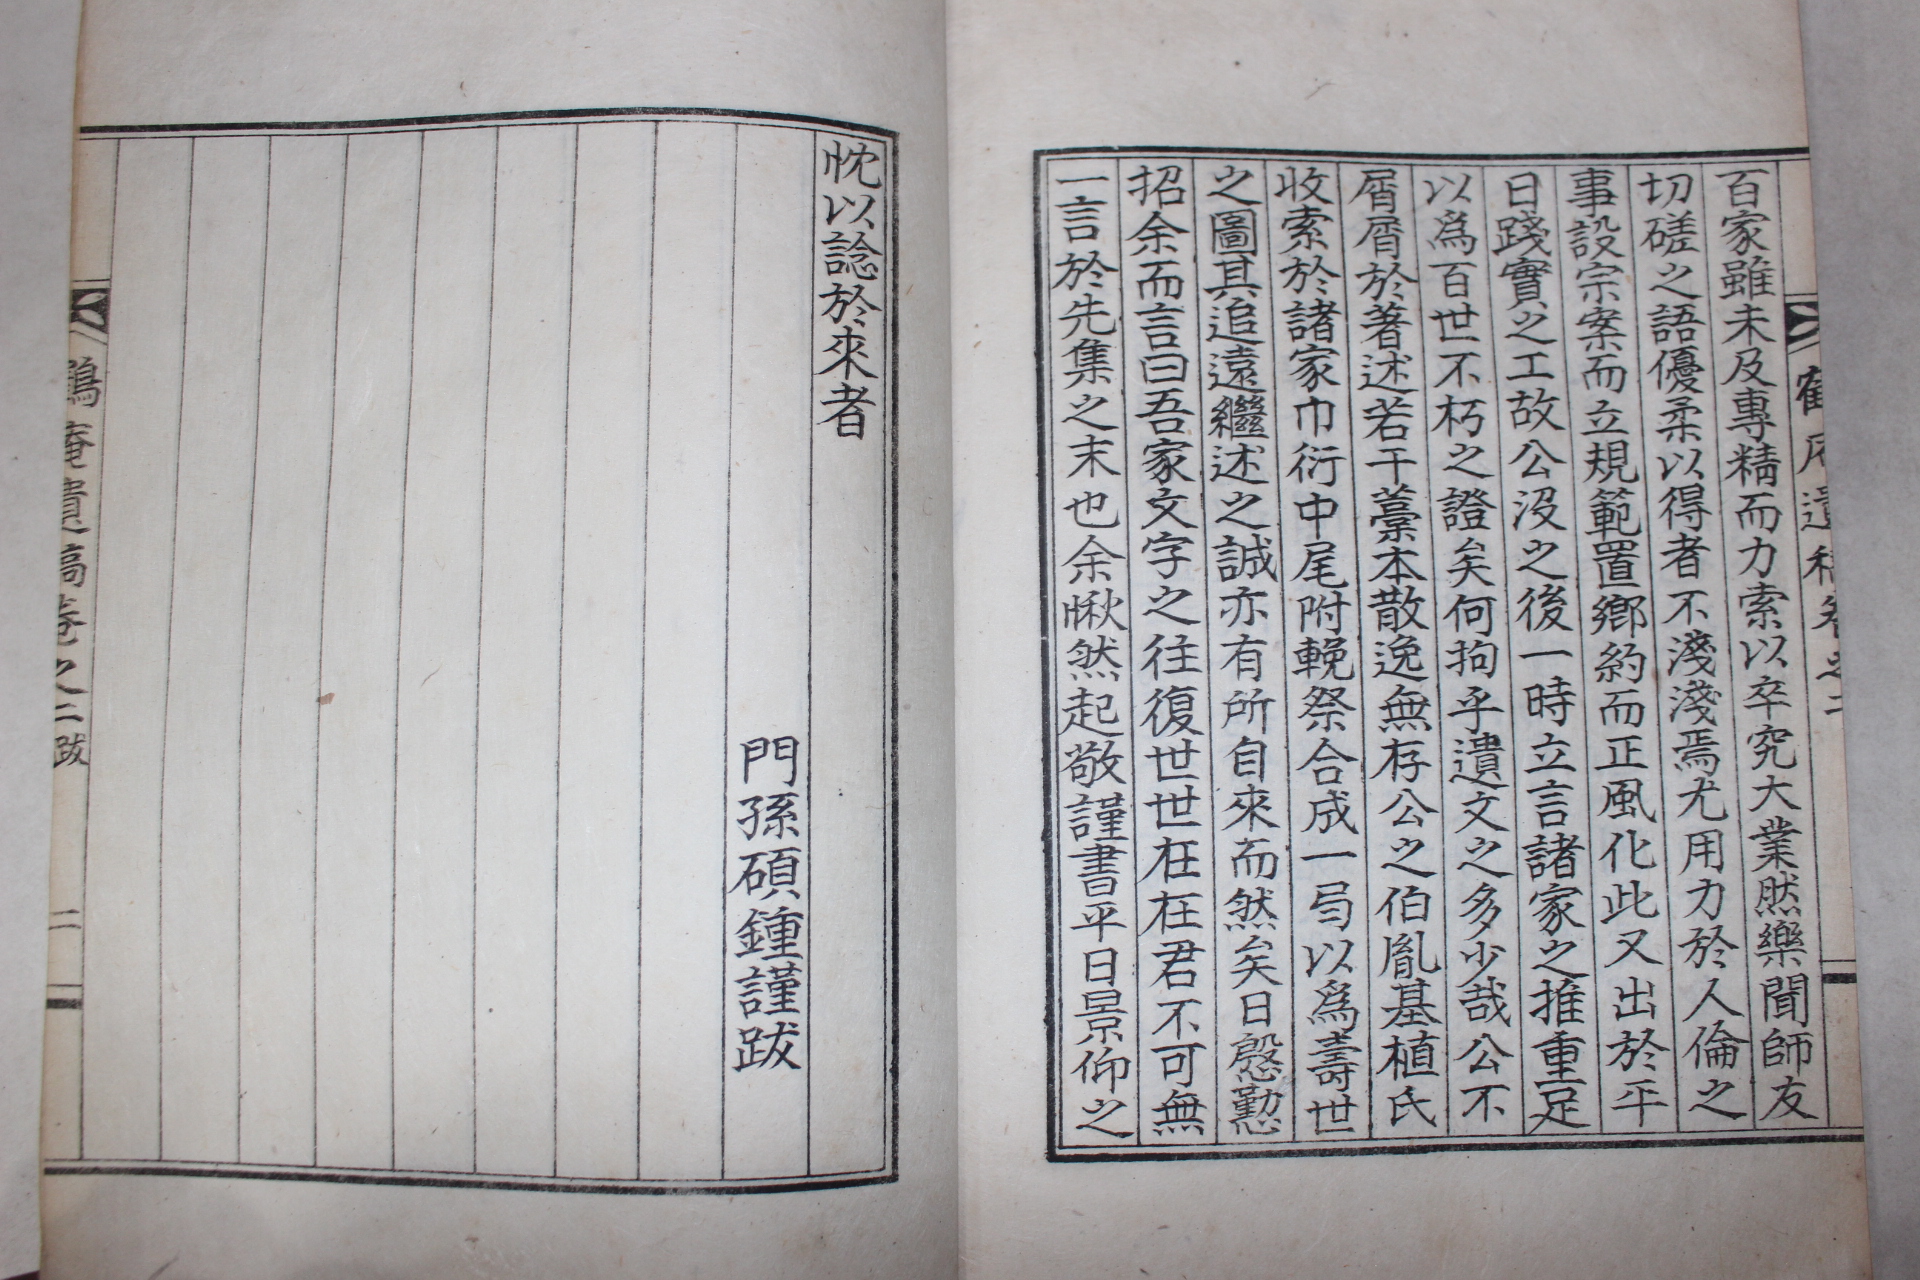 百家雖未及專精而力索以卒究大業然樂聞師友
切磋之語優柔以得者不淺淺焉尤用力於人倫之
事設宗案而立規範置鄉約而正風化此又出於平
日踐實之工故公沒之後一時立言諸家之推重足
以爲百世不朽之證矣何拘乎遺文之多少哉公不
屑屑於著述若干藁本散逸無存公之伯胤基植氏
收索於諸家巾衍中尾附輓祭合成一弓以爲壽世
之圖其追遠繼述之誠亦有所自來而然矣日慇懃
招余而言曰吾家文字之往復世世在在君不可無
一言於先集之末也余愀然起敬謹書平日景仰之
忱以諗於來者
門孫碩鍾謹跋
庵遺稿卷之二 跋
二